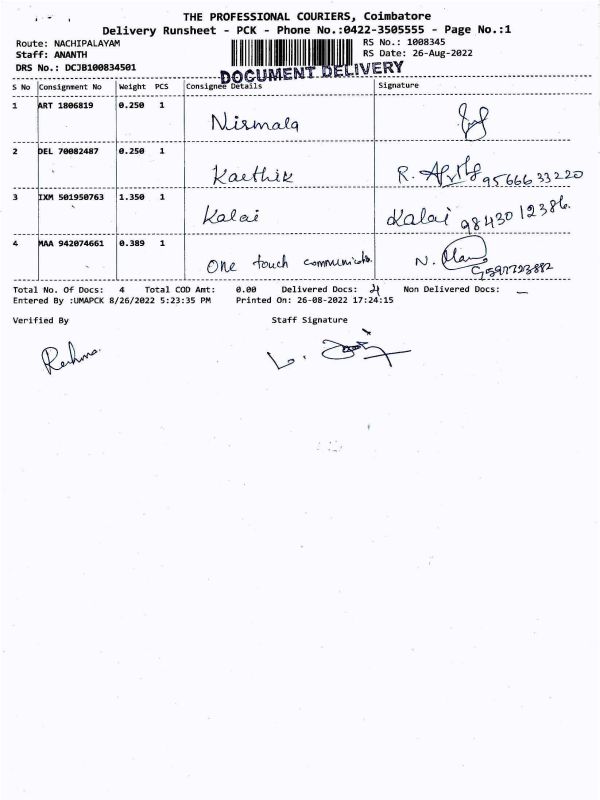 THE PROFESSIONAL COURIERS, Coimbatore
Delivery Runsheet - PCK - Phone No.:0422-3505555 - Page No.:1
Route: NACHIPALAYAM RS No.: 1008345
Staff: ANANTH RS Date: 26-Aug-2022
DRS No.: DCJB100834501
DOCUMENT DELIVERY
S No Consignment No Weight PCS Consignee Details Signature
1 ART 1806819 0.250 1
Nirmala
2 DEL 70082487 0.250 1
Karthik R. 95666 33220
3 IXM 501950763 1.350 1
Kalai Kalai 98430 12386.
4 MAA 942074661 0.389 1
One touch N.
Total No. Of Docs: 4 Total COD Amt: 0.00 Delivered Docs: 4 Non Delivered Docs: —
Entered By :UMAPCK 8/26/2022 5:23:35 PM Printed On: 26-08-2022 17:24:15
Verified By Staff Signature